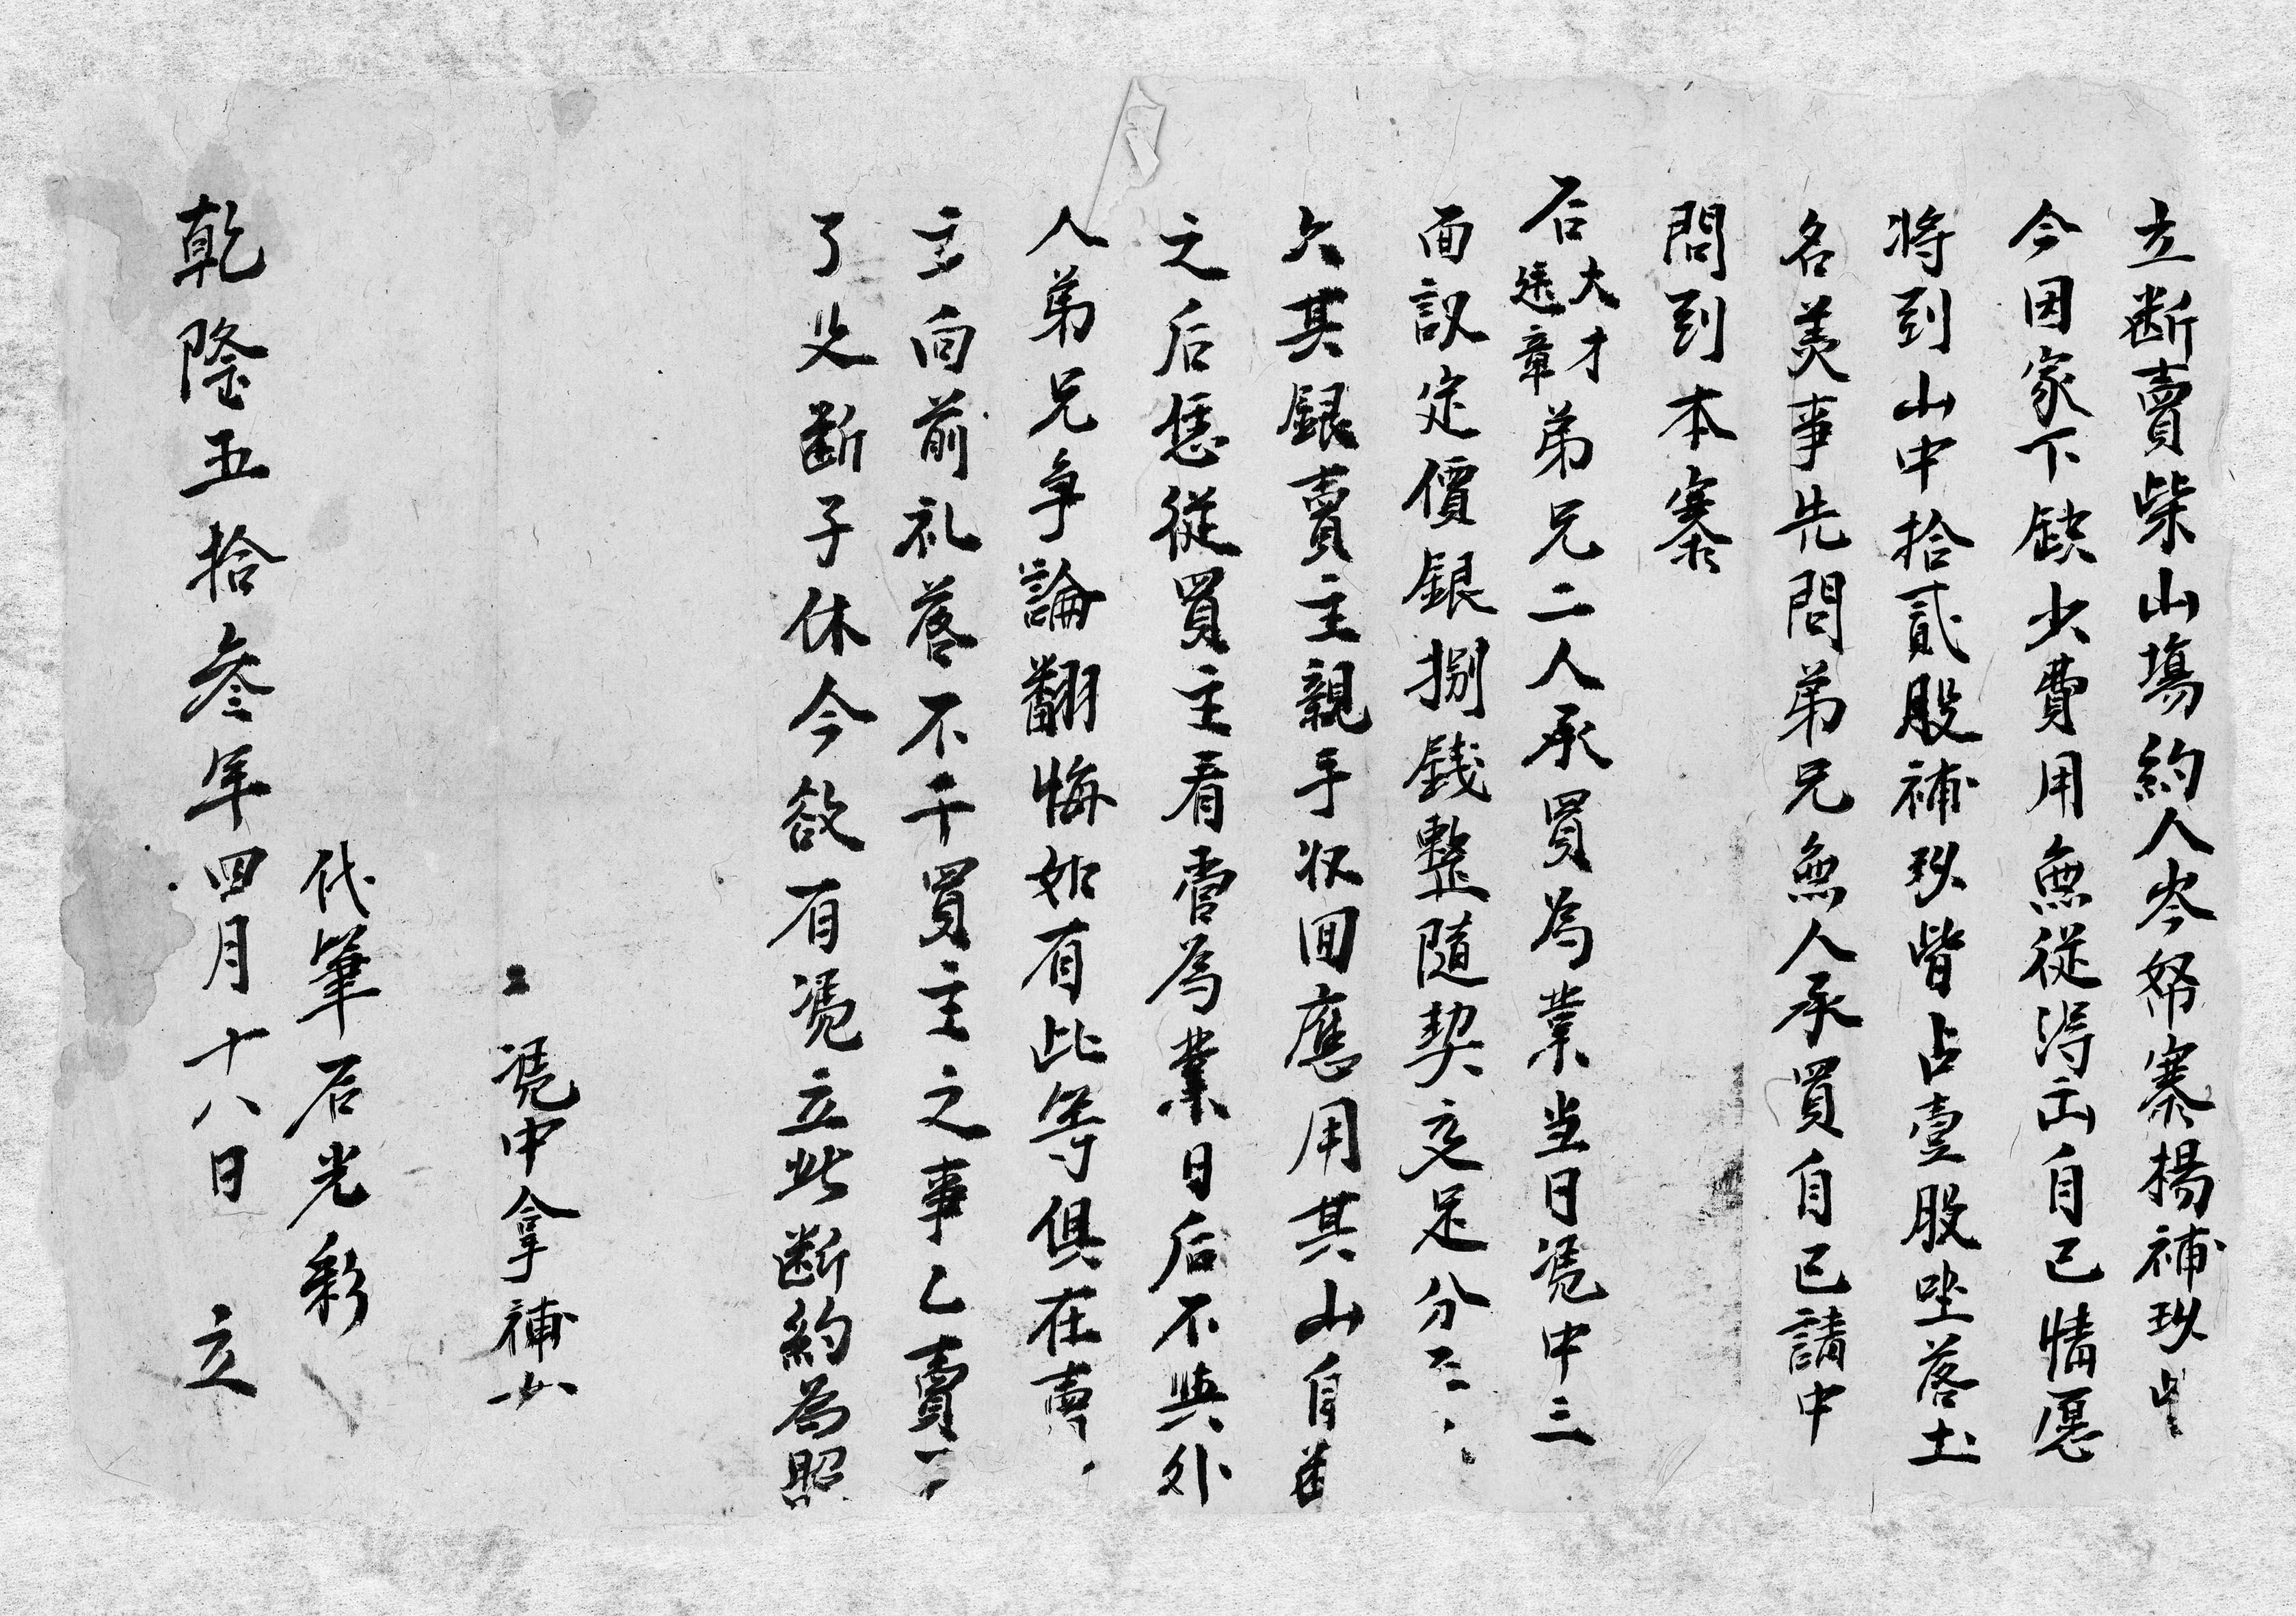 立断賣柴山塲約人岑努寨揚補玖
今因家下缺少費用無從淂出自己情愿
将到山中拾貳股補玖皆占壹股坐落土
名美事先問弟兄無人承買自己請中
問到本寨
石大才廷章弟兄二人承買為業当日凴中三
面訊定價銀捌錢整隨契交足分
欠其銀賣主親手收回應用其山自
之后恁從買主看管為業日后不與外
人弟兄争論翻悔如有此等俱在賣
主向前礼落不干買主之事乙賣
了父断子休今欲有凴立此断約為照
凴中拿補
代筆石光彩
乾隆五拾叁年四月十八日 立